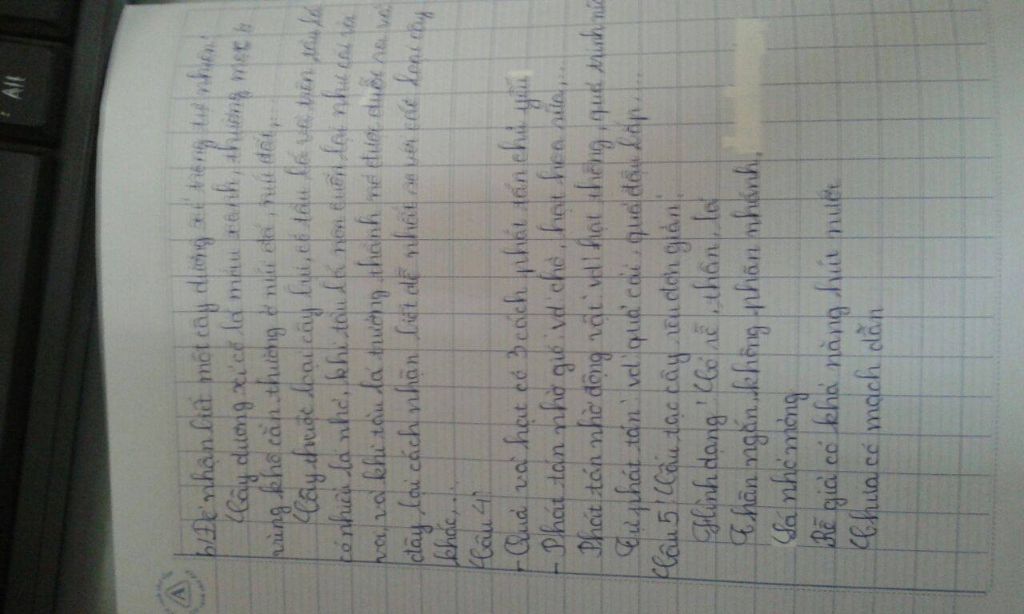 b) Để nhận biết một cây dương xỉ trong tự nhiên:
Cây dương xỉ có lá màu xanh, thường mọc ở
vùng khô cằn thường ở núi đá, núi đồi,...
Cây thuộc loại cây bụi, có tàu lá và trên tàu lá
có nhiều lá nhỏ, khi tàu lá non cuộn lại như cái
và khi tàu lá trưởng thành nó duỗi ra và
đây lại cách nhận biết dễ nhất so với các loại cây
khác,...
Câu 4:
- Quả và hạt có 3 cách phát tán chủ yếu
- Phát tán nhờ gió vd: chò, hạt hoa sữa,...
Phát tán nhờ động vật: vd: hạt thông, quả trinh nữ
Tự phát tán: vd: quả cải, quả đậu bắp...
Câu 5: Cấu tạo cây rêu đơn giản:
Hình dạng: Có rễ, thân, lá
Thân ngắn, không phân nhánh,
Lá nhỏ mỏng
Rễ giả có khả năng hút nước
Chưa có mạch dẫn
Alt